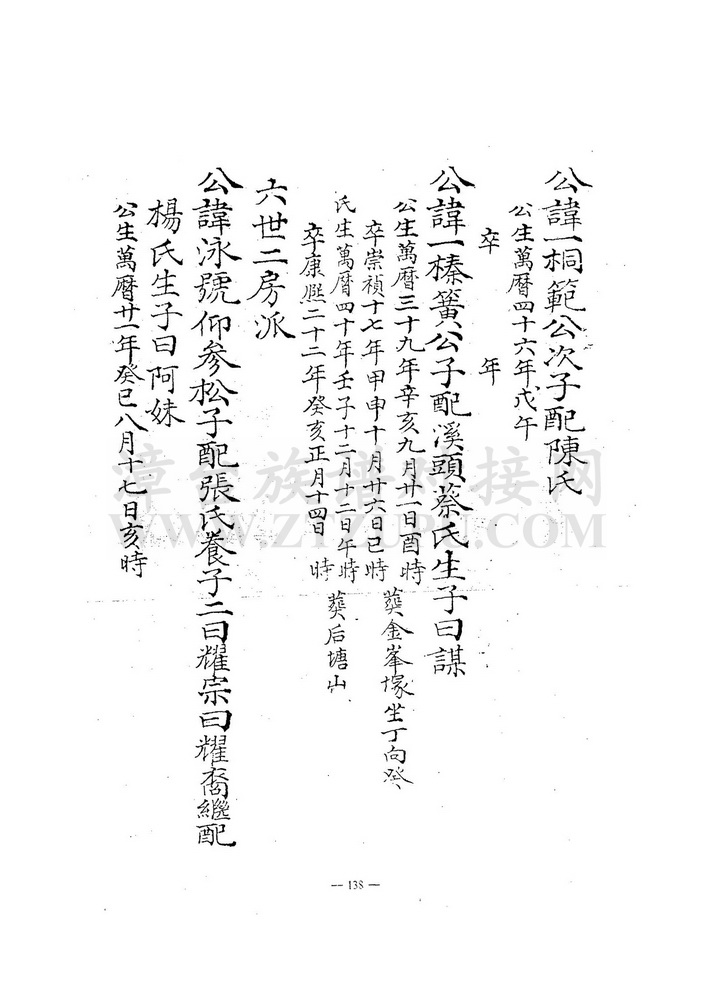 公諱一桐範公次子配陳氏
公生萬曆四十六年戊午
卒 年
公諱一榛簧公子配溪頭蔡氏生子曰謀
公生萬曆三十九年辛亥九月廿一日酉時
卒崇禎十七年甲申十月廿六日巳時 葬金峯塚坐丁向癸
氏生萬曆四十年壬子十二月十二日午時
卒康熙二十二年癸亥正月十四日 時 葬后塘山
六世二房派
公諱泳號仰參松子配張氏養子二曰耀宗曰耀裔繼配
楊氏生子曰阿妹
公生萬曆廿一年癸巳八月十七日亥時
漳台族谱对接网
WWW.ZTZUPU.COM
— 138 —